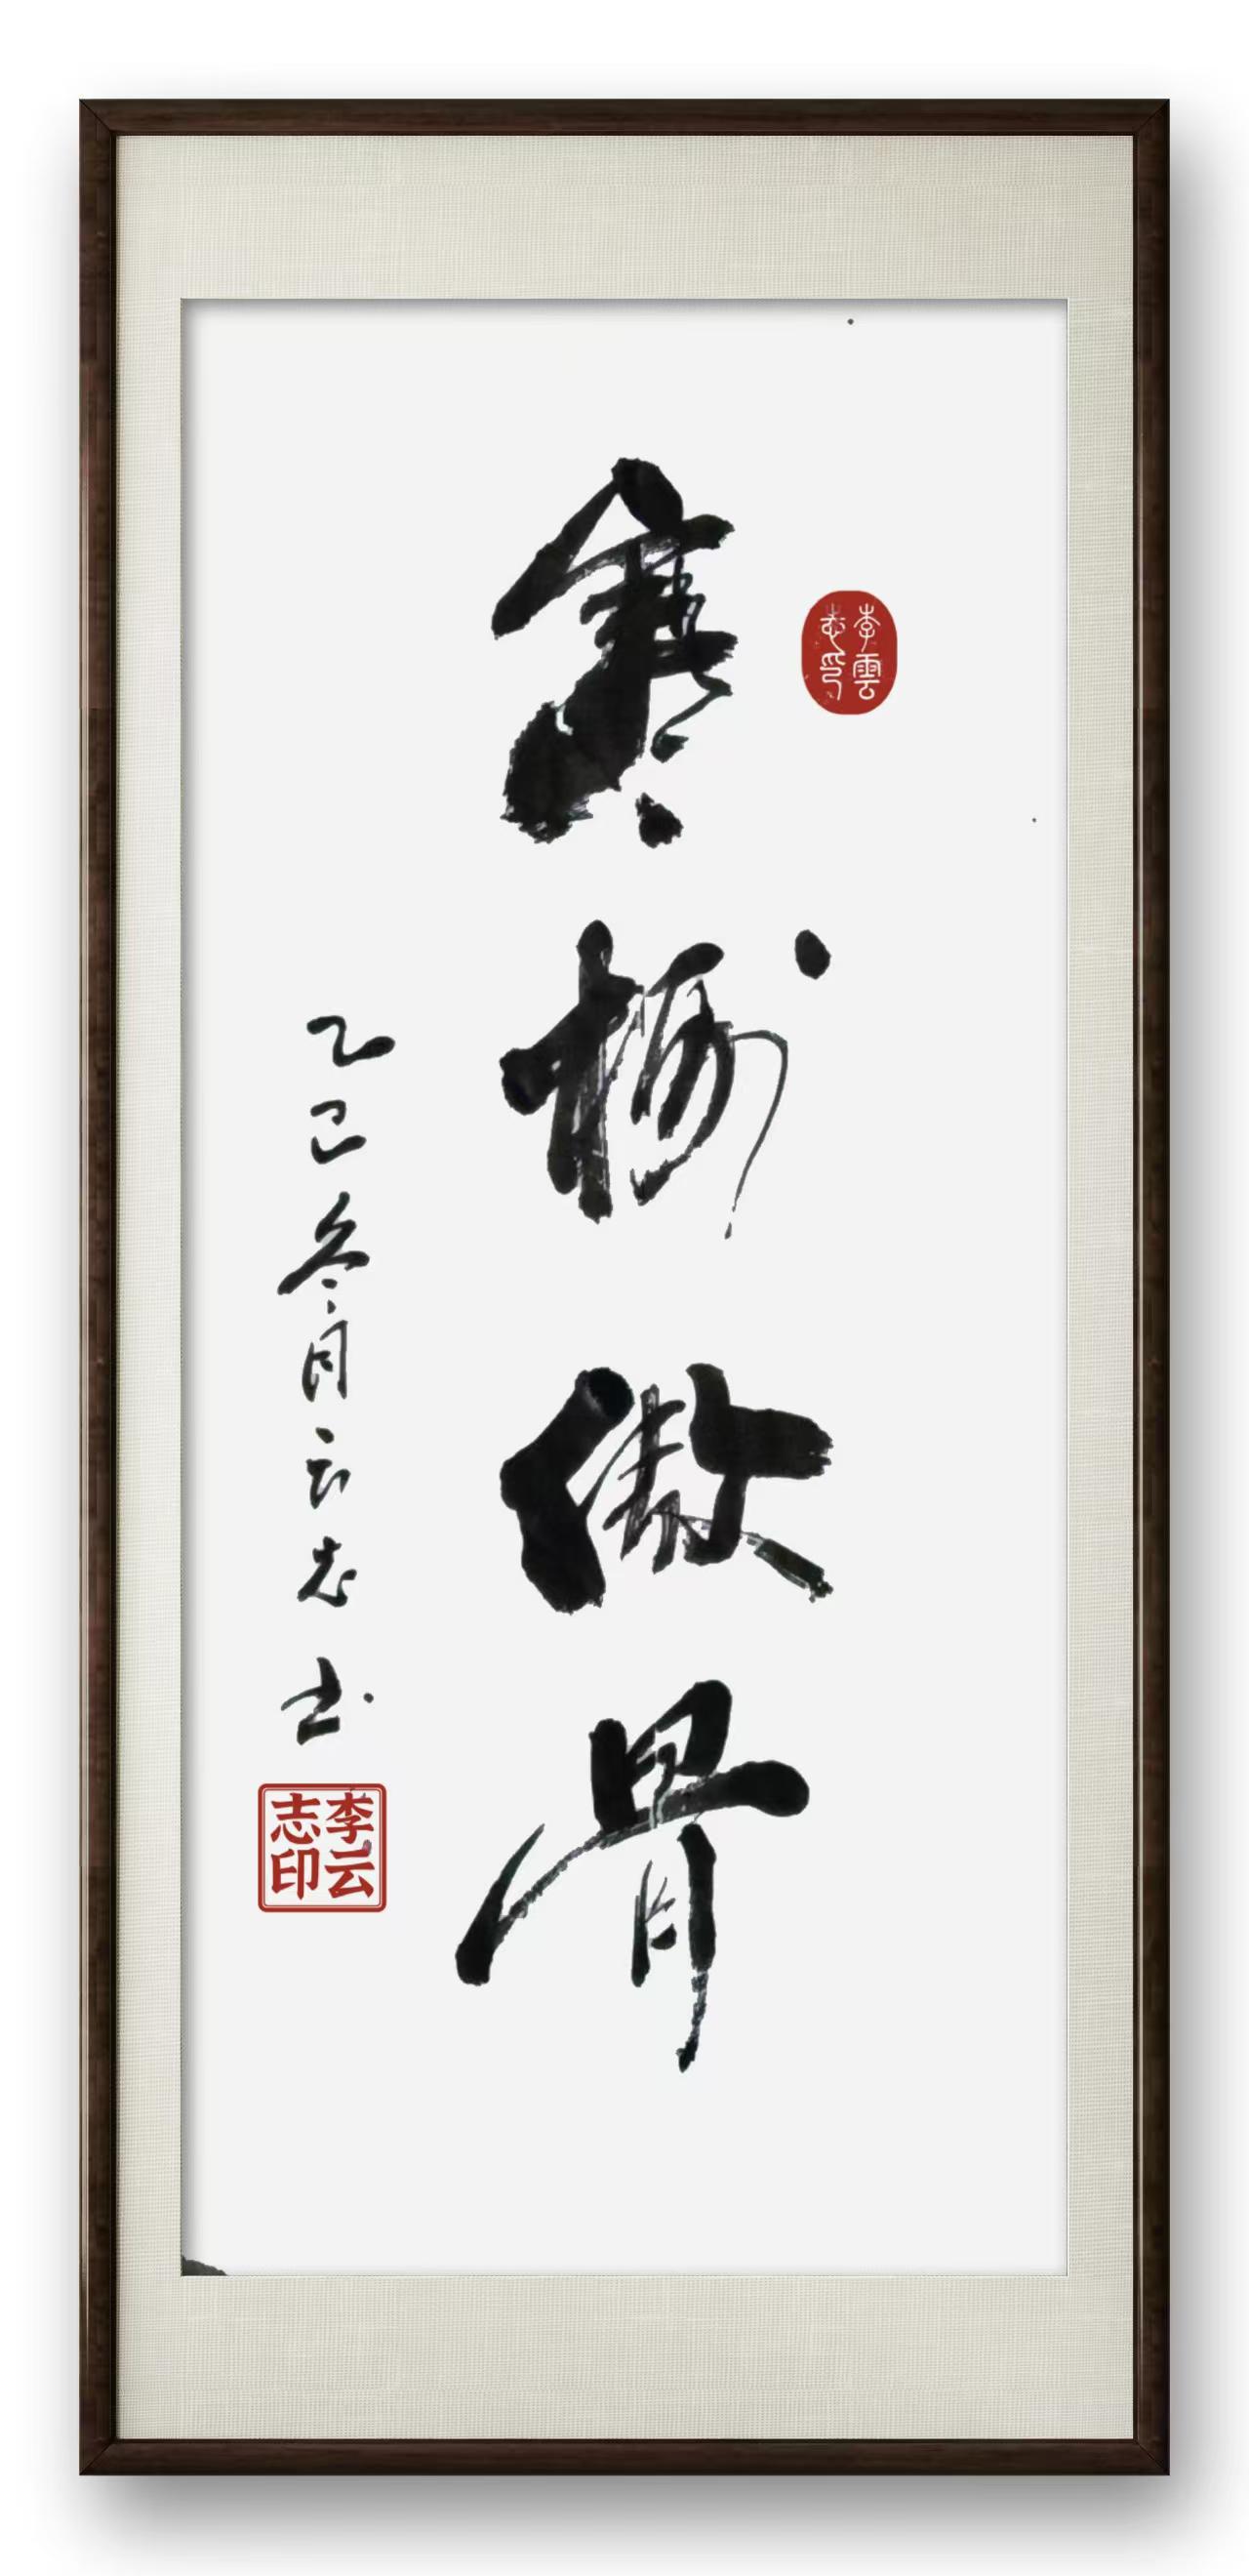 李雲志印
寒梅傲骨
乙巳冬月云志书
李云
志印